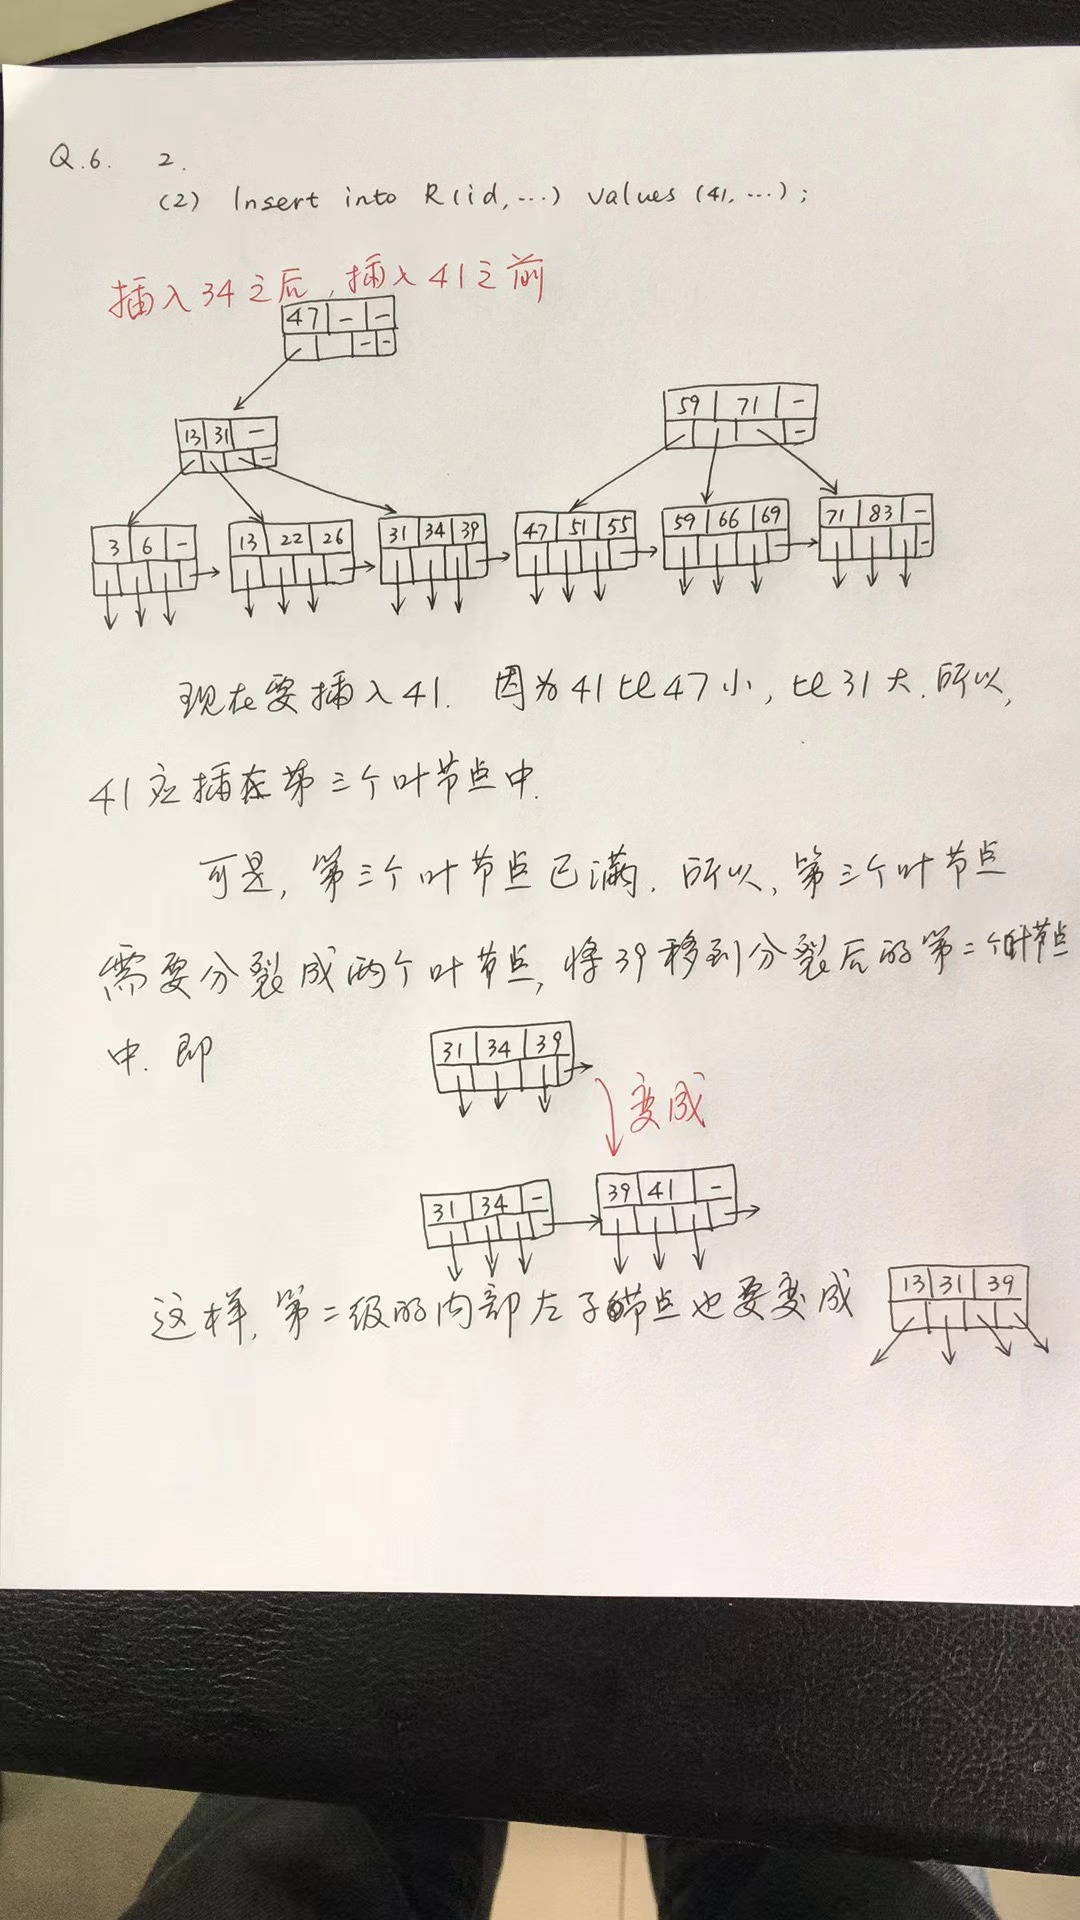 Q.6. 2.
(2) Insert into R(id, ...) values (41, ...);
插入34之后,插入41之前
47 - -
- -
13 31 -
-
59 71 -
-
3 6 -
13 22 26
31 34 39
47 51 55
59 66 69
71 83 -
-
现在要插入41. 因为41比47小,比31大.所以,
41应插在第三个叶节点中.
可是,第三个叶节点已满.所以,第三个叶节点
需要分裂成两个叶节点,将39移到分裂后的第二个叶节点
中.即
31 34 39
变成
31 34 -
39 41 -
这样,第二级的内部左子节点也要变成
13 31 39